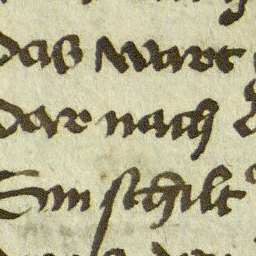 das wart
dar nach
Sin schilt